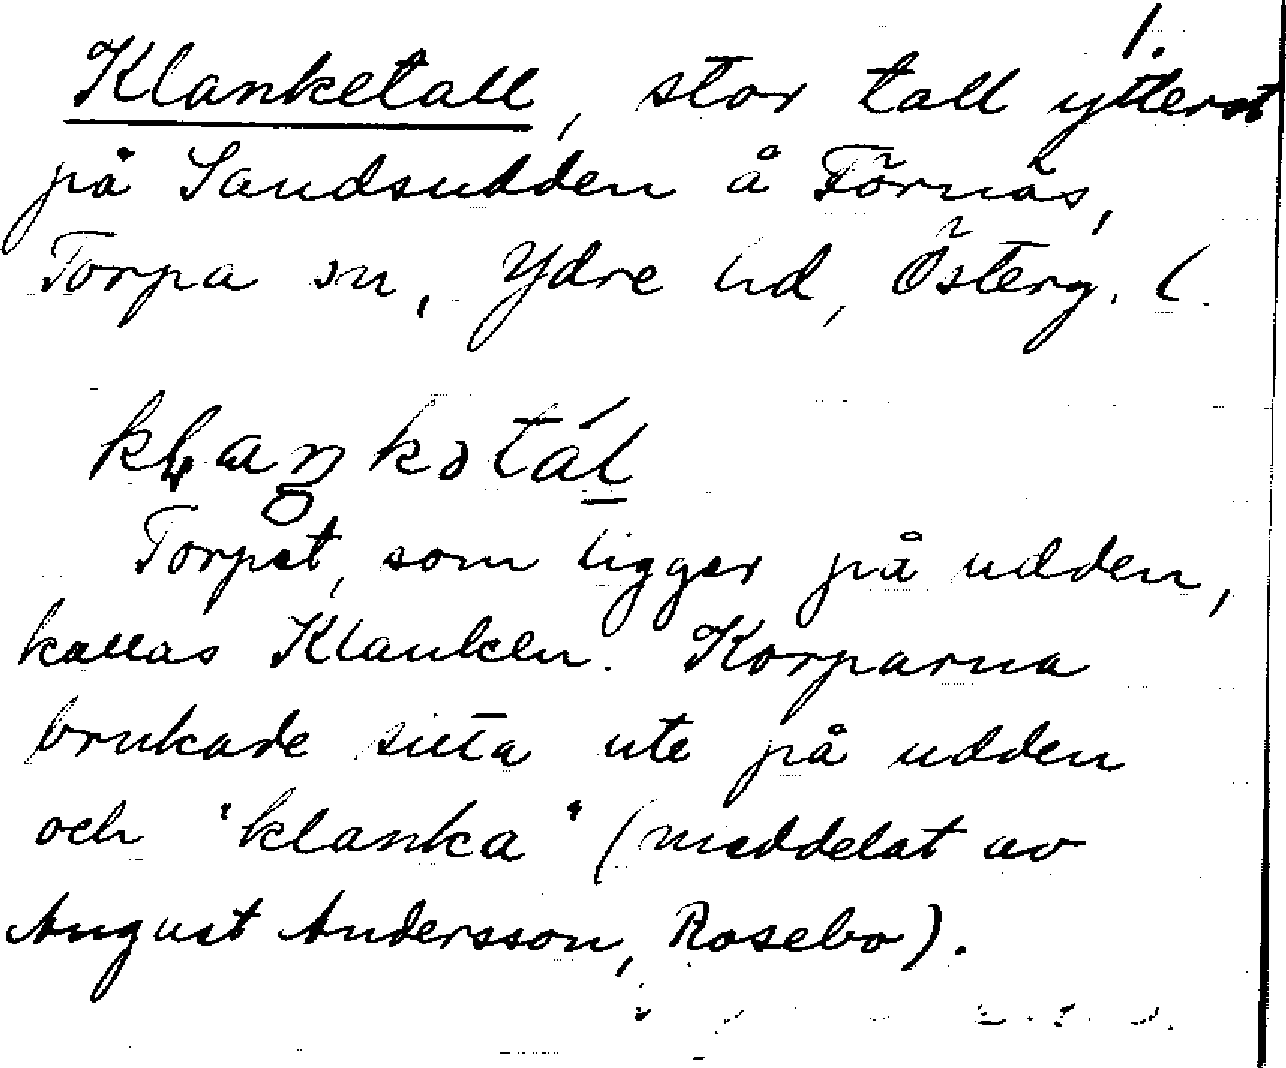 1.
Klanketall, stor tall ytterst
på Sandsudden å Förnäs,
Torpa sn, Ydre hd, Österg. l.
klaŋkɔtál
Torpet, som ligger på udden,
kallas Klanken. Korparna
brukade sitta ute på udden
och "klanka" (meddelat av
August Andersson, Rosebo).